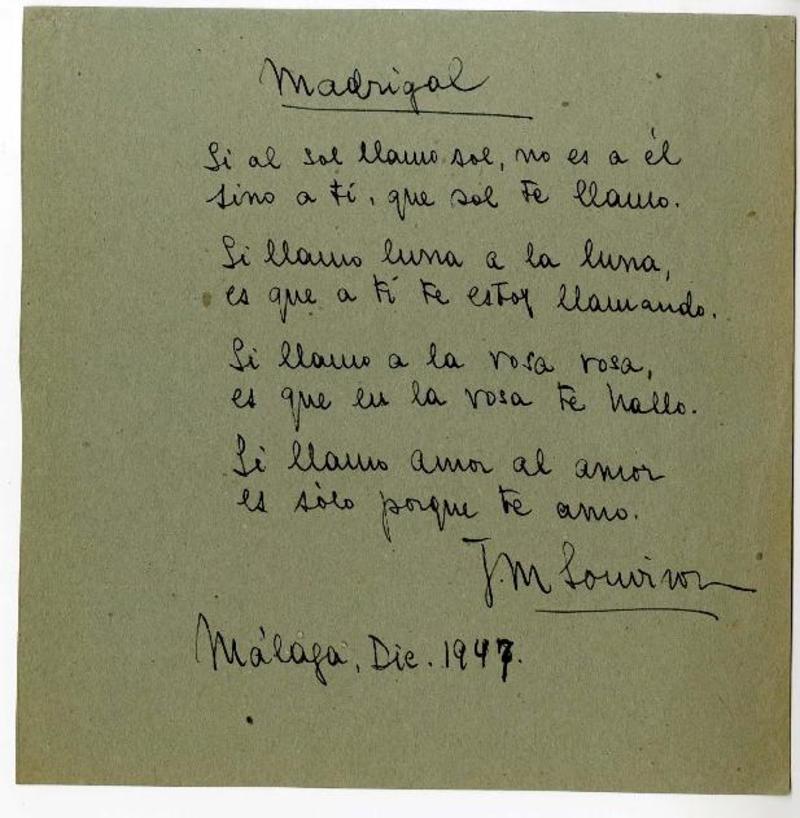 Madrigal
Si al sol llamo sol, no es a él
sino a tí, que sol te llamo.
Si llamo luna a la luna,
es que a tí te estoy llamando.
Si llamo a la rosa rosa,
es que en la rosa te hallo.
Si llamo amor al amor
es sólo porque te amo.
J. M Souviron
Málaga, Dic. 1947.